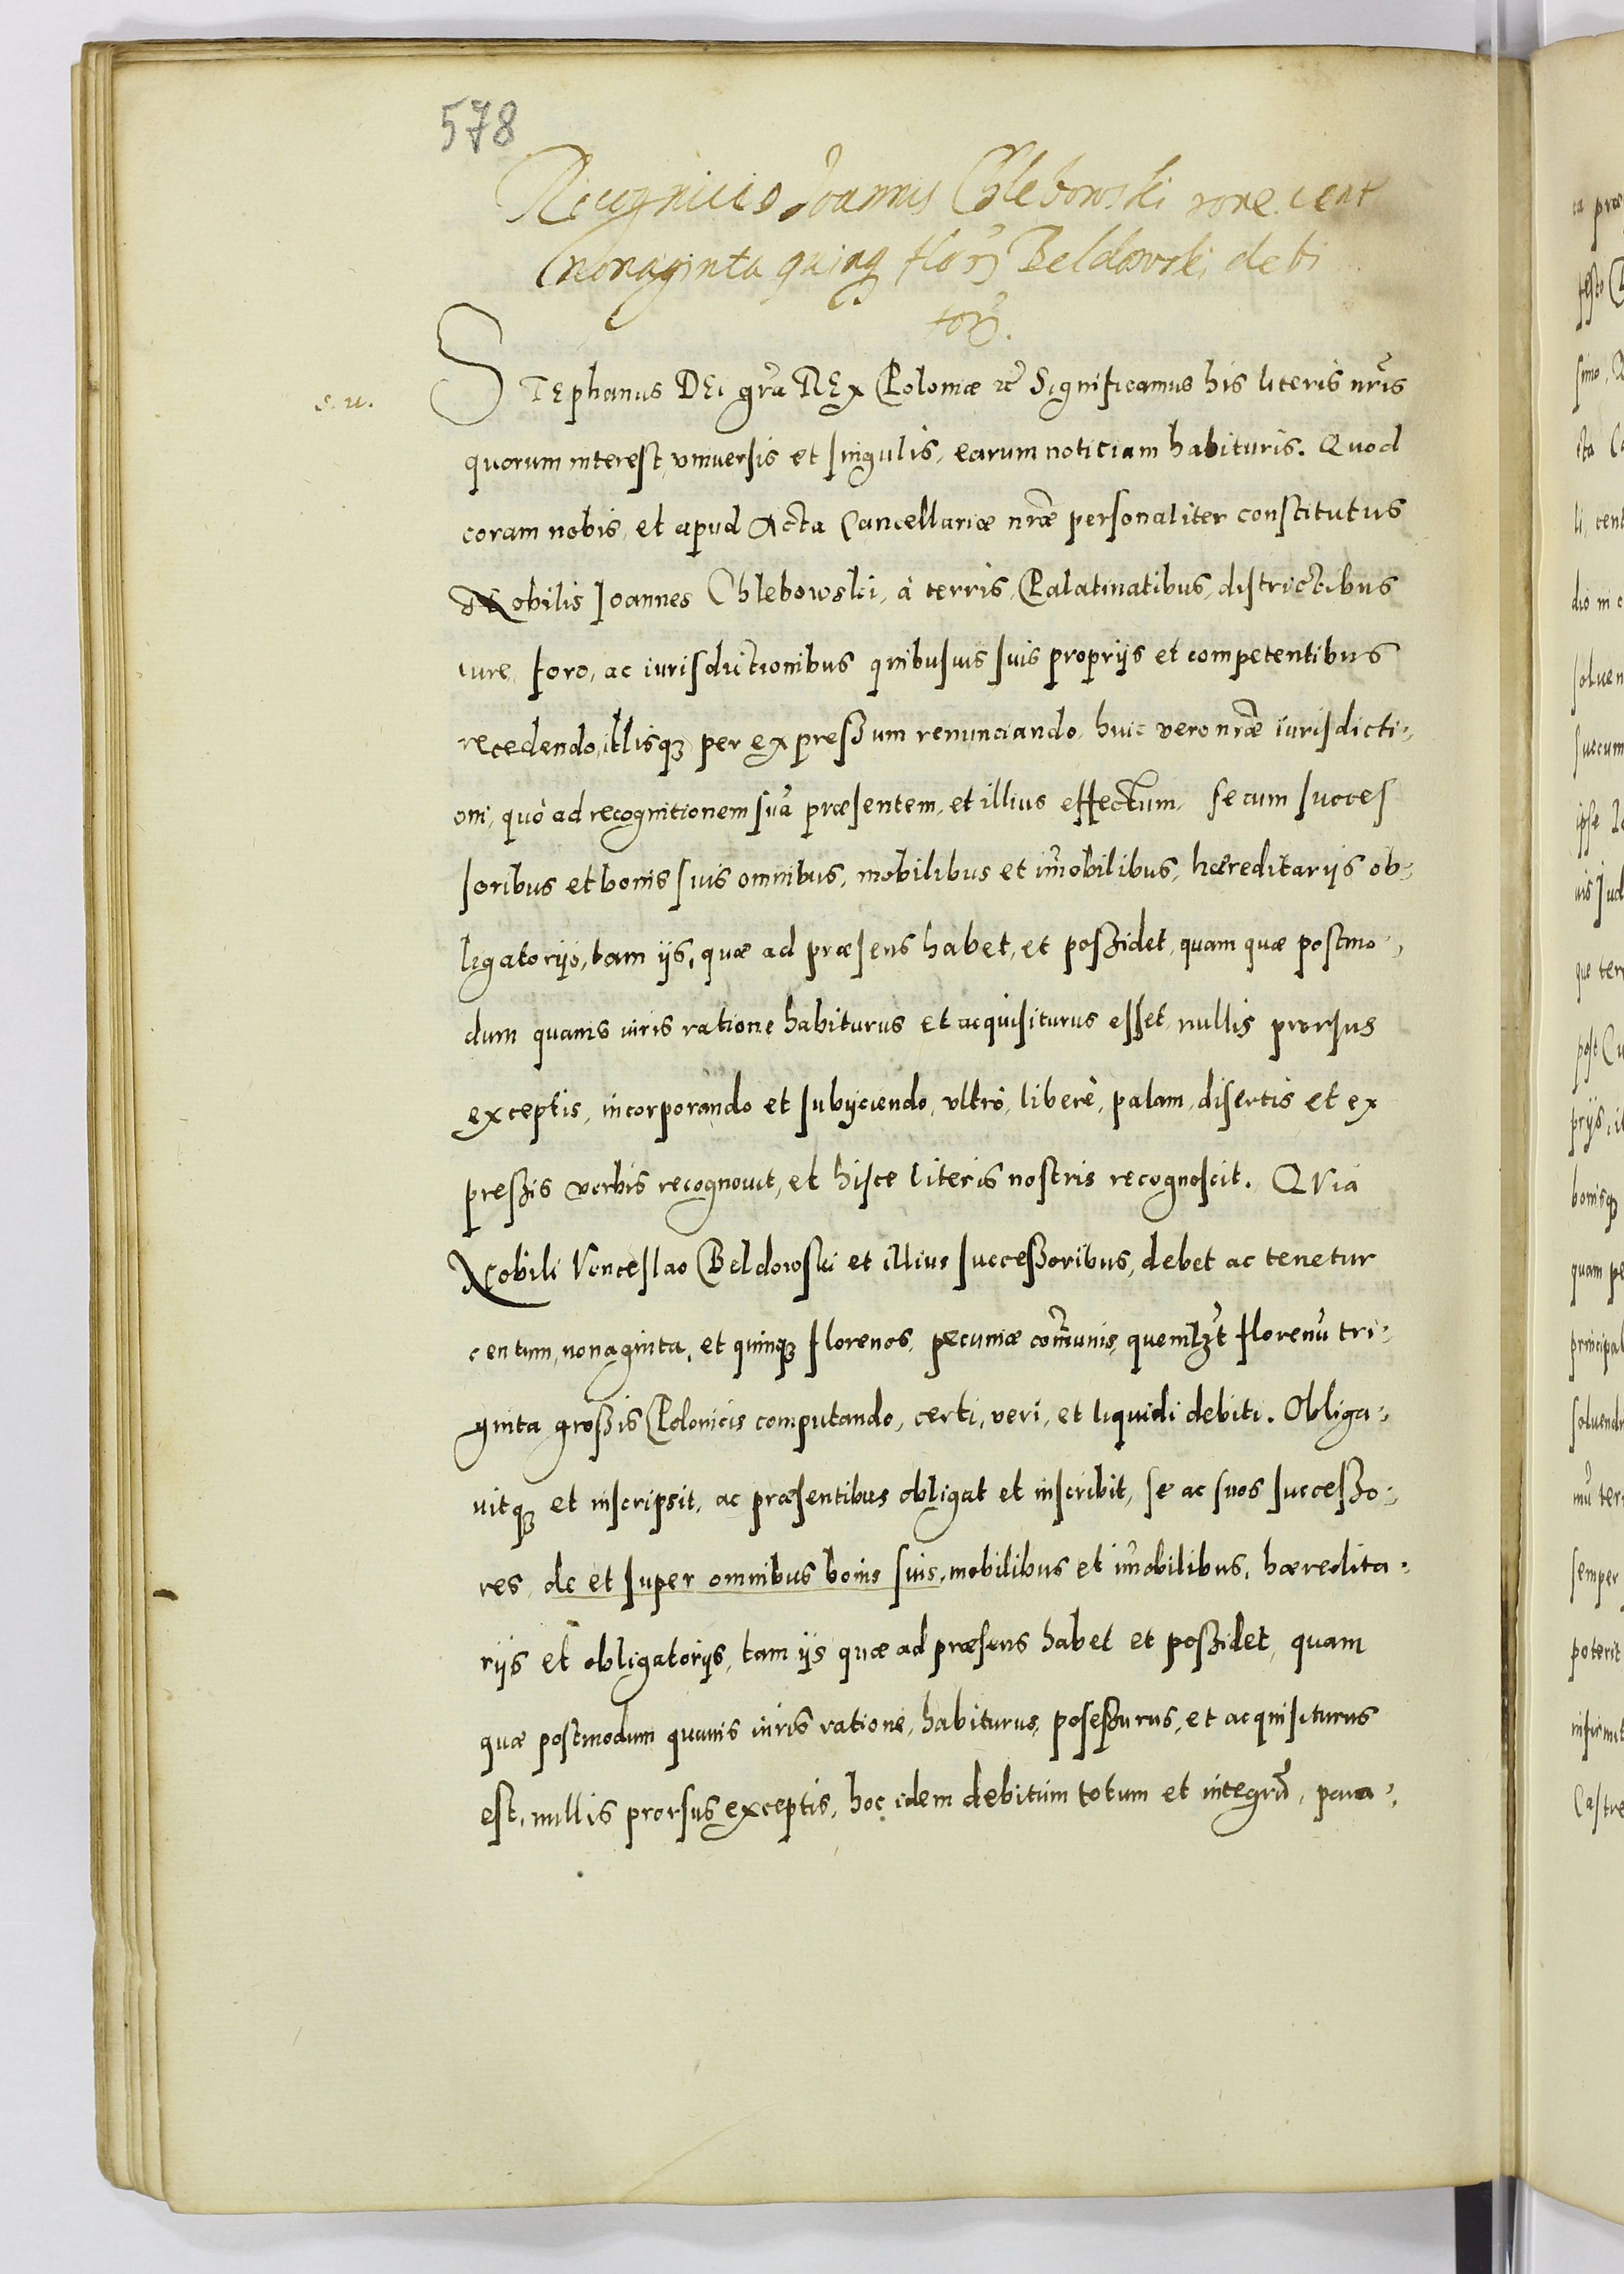 578
Recognicio Joannis Chlebowski rone cent
nonaginta quinq flor Beldowski debi
tor.
s. u.
STEphanus DEi gra REx Poloniæ etc Significamus his literis nris
quorum interest, vniuersis et singulis, earum noticiam habituris. Quod
coram nobis, et apud Acta Cancellariæ nræ personaliter constitutus
Nobilis Joannes Chlebowski, à terris, Palatinatibus, districtibus
iure, foro, ac iurisdictionibus quibusuis suis proprijs et competentibus
recedendo, illisq; per expreßum renunciando, huic vero nræ iurisdicti-
oni, quò ad recognitionem suã præsentem, et illius effectum, se cum succes
soribus et bonis suis omnibus, mobilibus et im̃obilibus, hæreditarijs ob-
ligatorijs, tam ijs, quæ ad præsens habet, et poßidet, quam quæ postmo-
dum quauis iuris ratione habiturus et acquisiturus esset, nullis prorsus
exceptis, incorporando et subijciendo, vltrò, liberè, palam, disertis et ex
preßis verbis recognouit, et hisce literis nostris recognoscit. QVia
Nobili Venceslao Beldowski et illius succeßoribus, debet ac tenetur
centum, nonaginta, et quinq; florenos, pecuniæ com̃unis, quemlzt florenũ tri-
ginta großis Polonicis computando, certi, veri, et liquidi debiti. Obliga-
uitq; et inscripsit, ac præsentibus obligat et inscribit, se ac suos succeßo-
res, de et super omnibus bonis suis, mobilibus et im̃obilibus, hæredita-
rijs et obligatorijs, tam ijs quæ ad præsens habet et poßidet, quam
quæ postmodum quauis iuris ratione, habiturus, poseßurus, et acquisiturus
est, nullis prorsus exceptis, hoc idem debitum totum et integrũ, para-